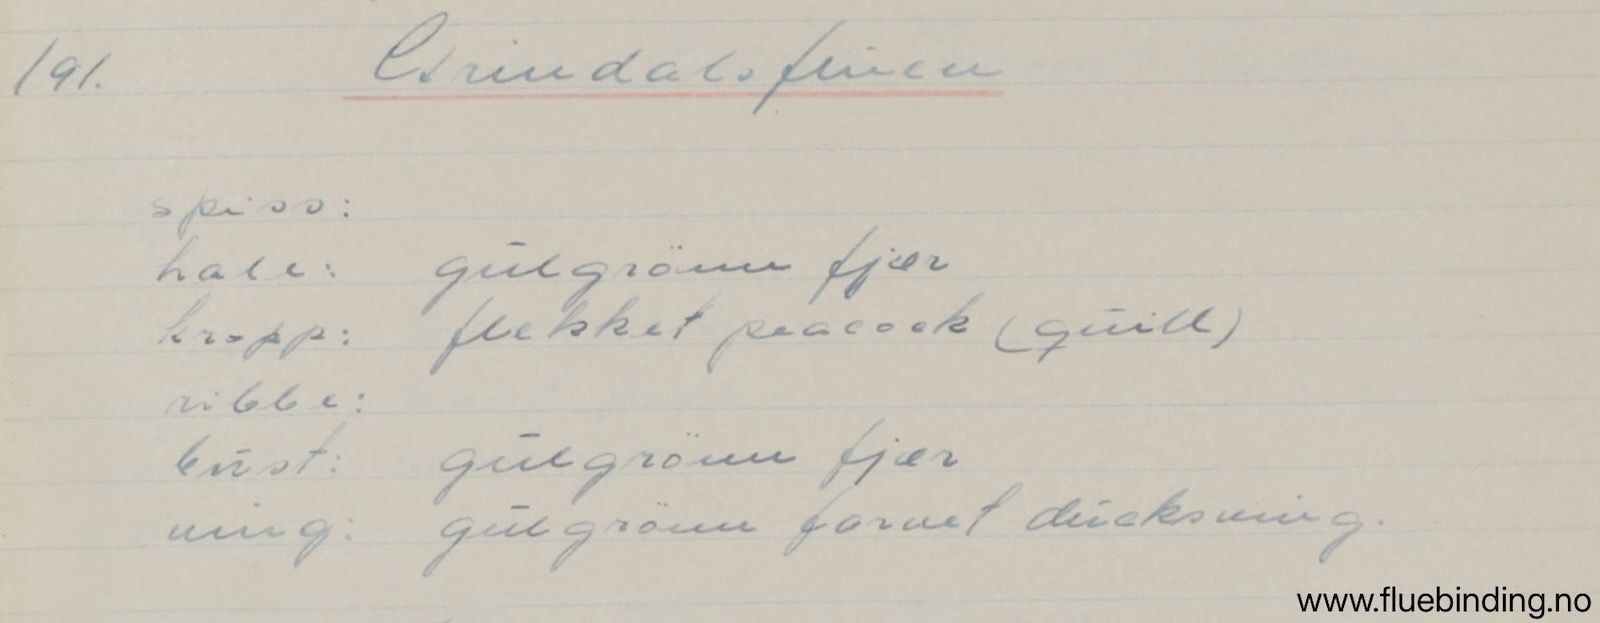 191. Grindalsfluen
spiss:
hale: gulgrönn fjær
kropp: flekket peacock (quill)
ribbe:
bust: gulgrönn fjær
ving: gulgrönn farvet ducksving.
www.fluebinding.no